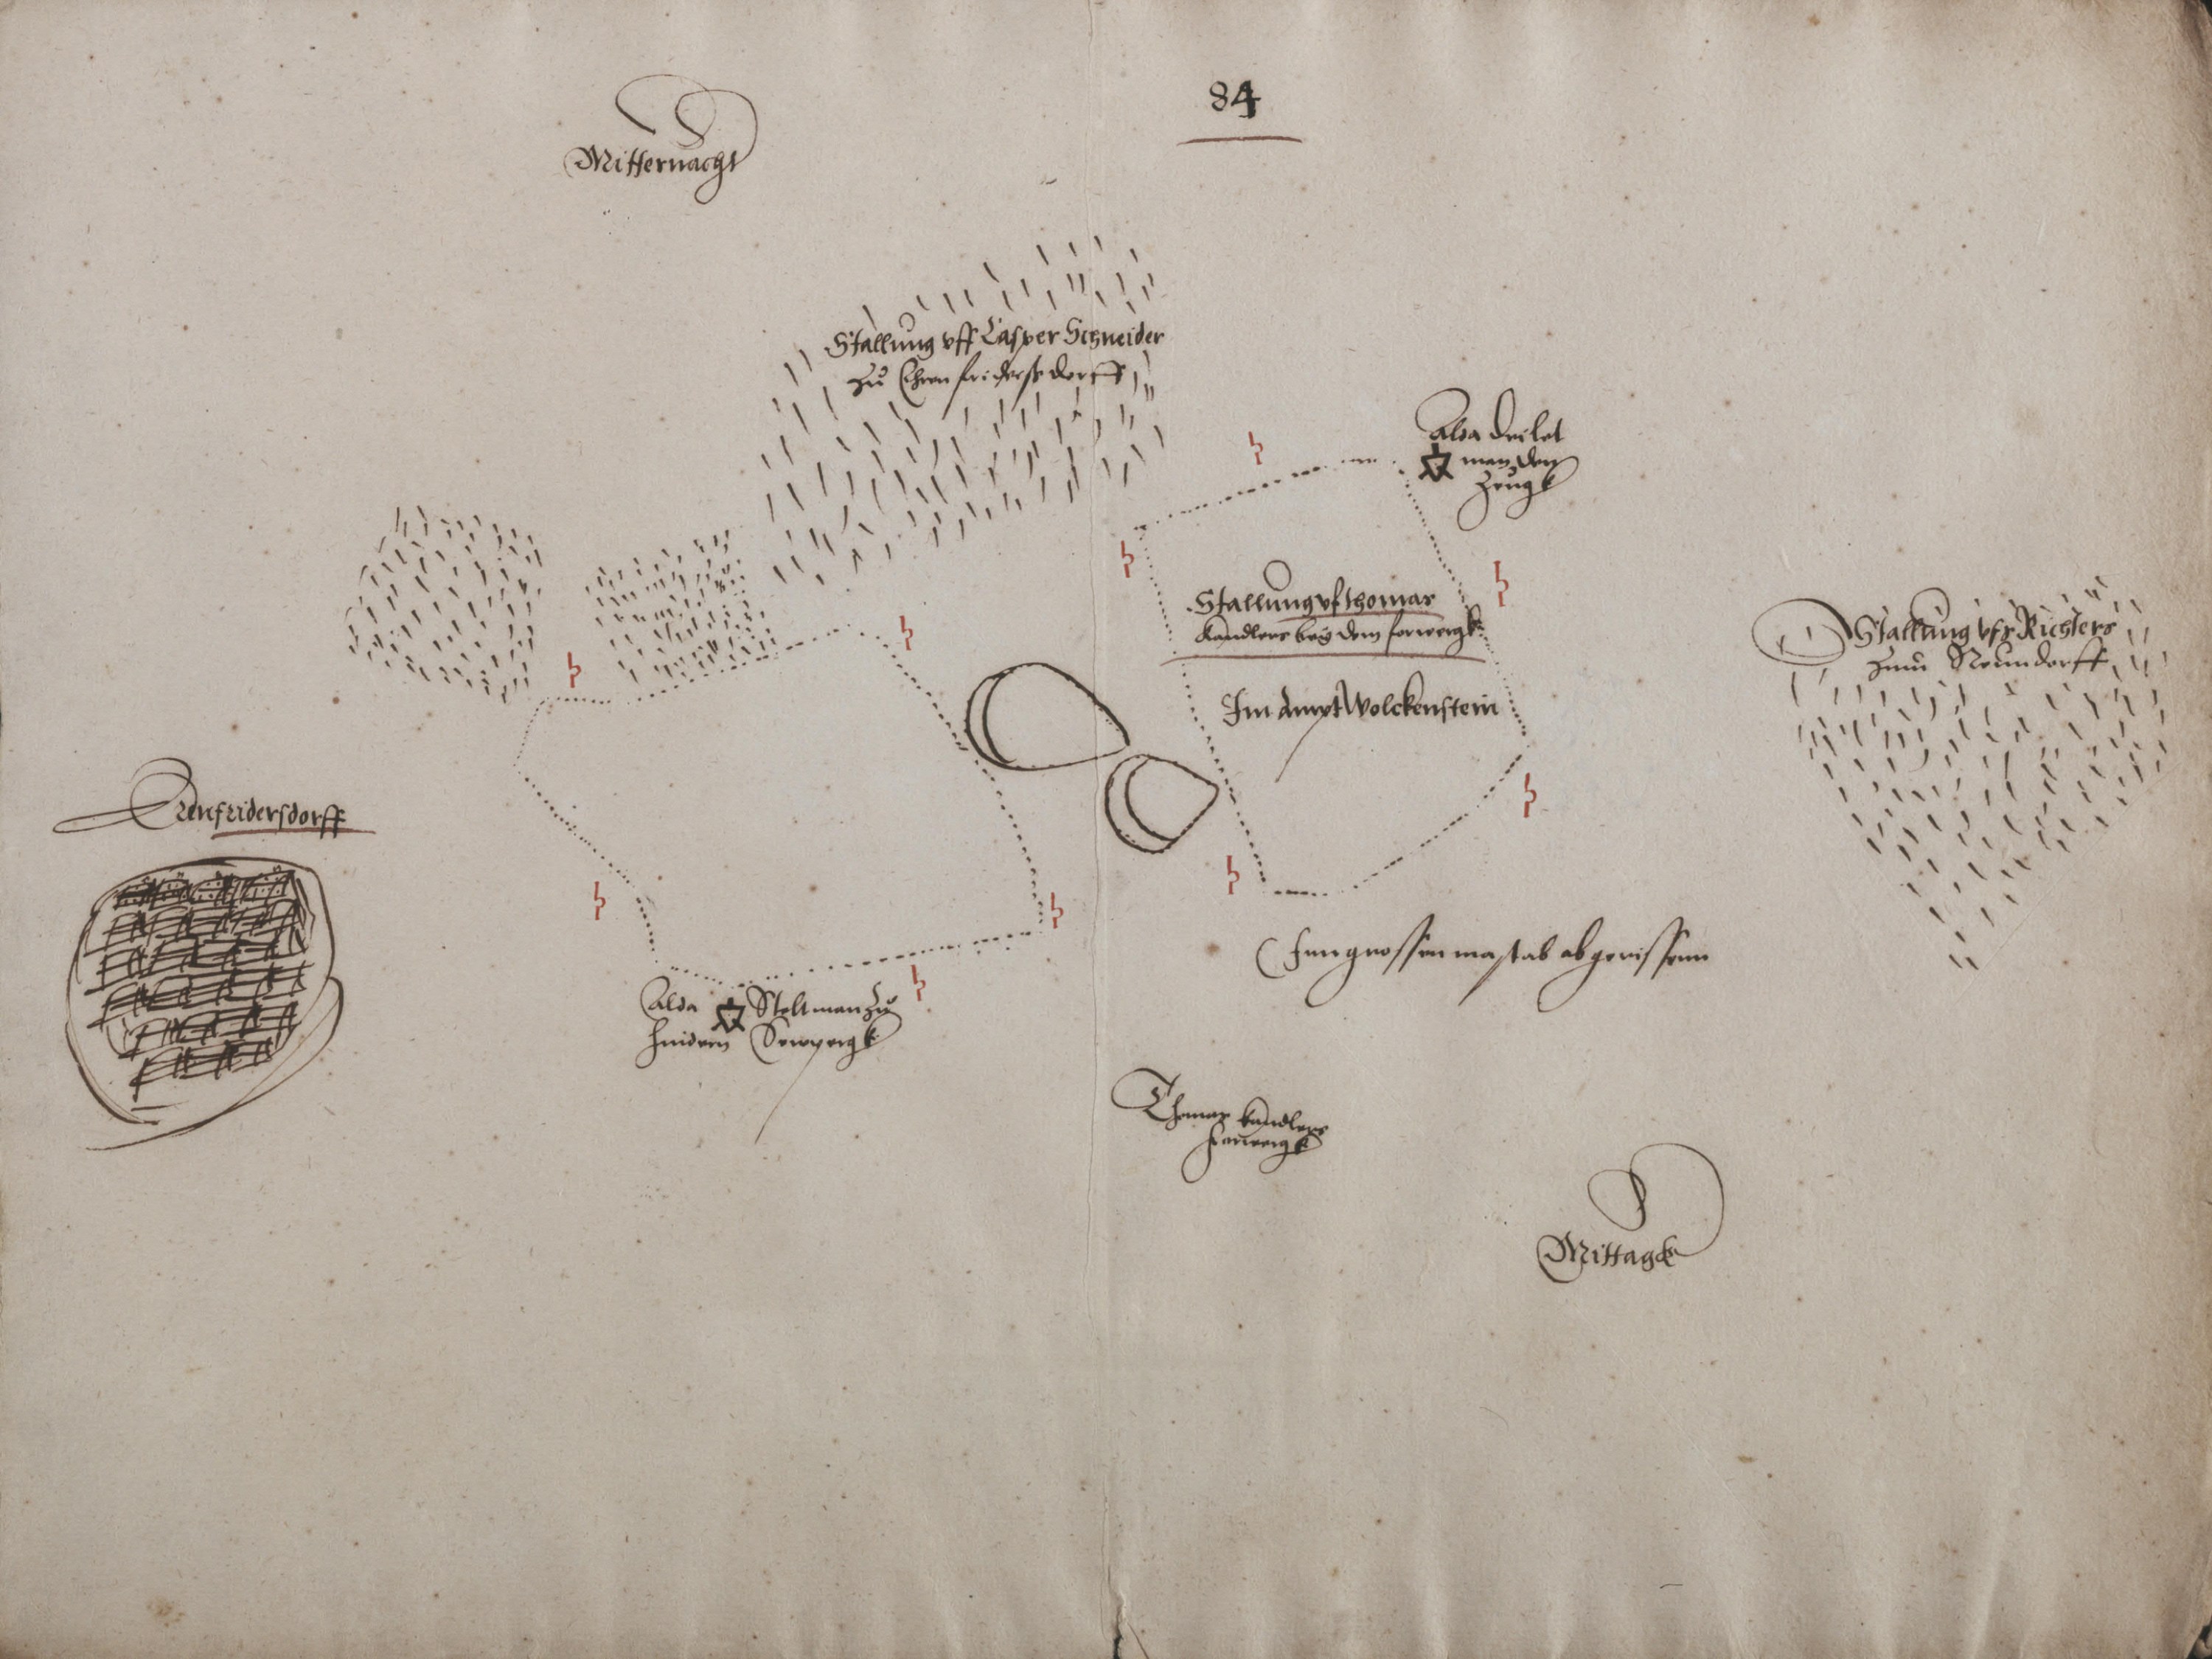 84
Mitternacht
Stallung vff Casper Schneider
zu Ehrenfridersdorff
Alda deilet
man den
Zeugk
Stallung vf thomas
Kandlers bey dem forwergk
Im Ampt Wolckenstein
Stallung vfs Richters
zum Neundorff
Erenfridersdorff
Im grossen mastab abgerissenn
Alda Stelt man zu
hindern
Thomas Kandlers
forwergk
Mittagk